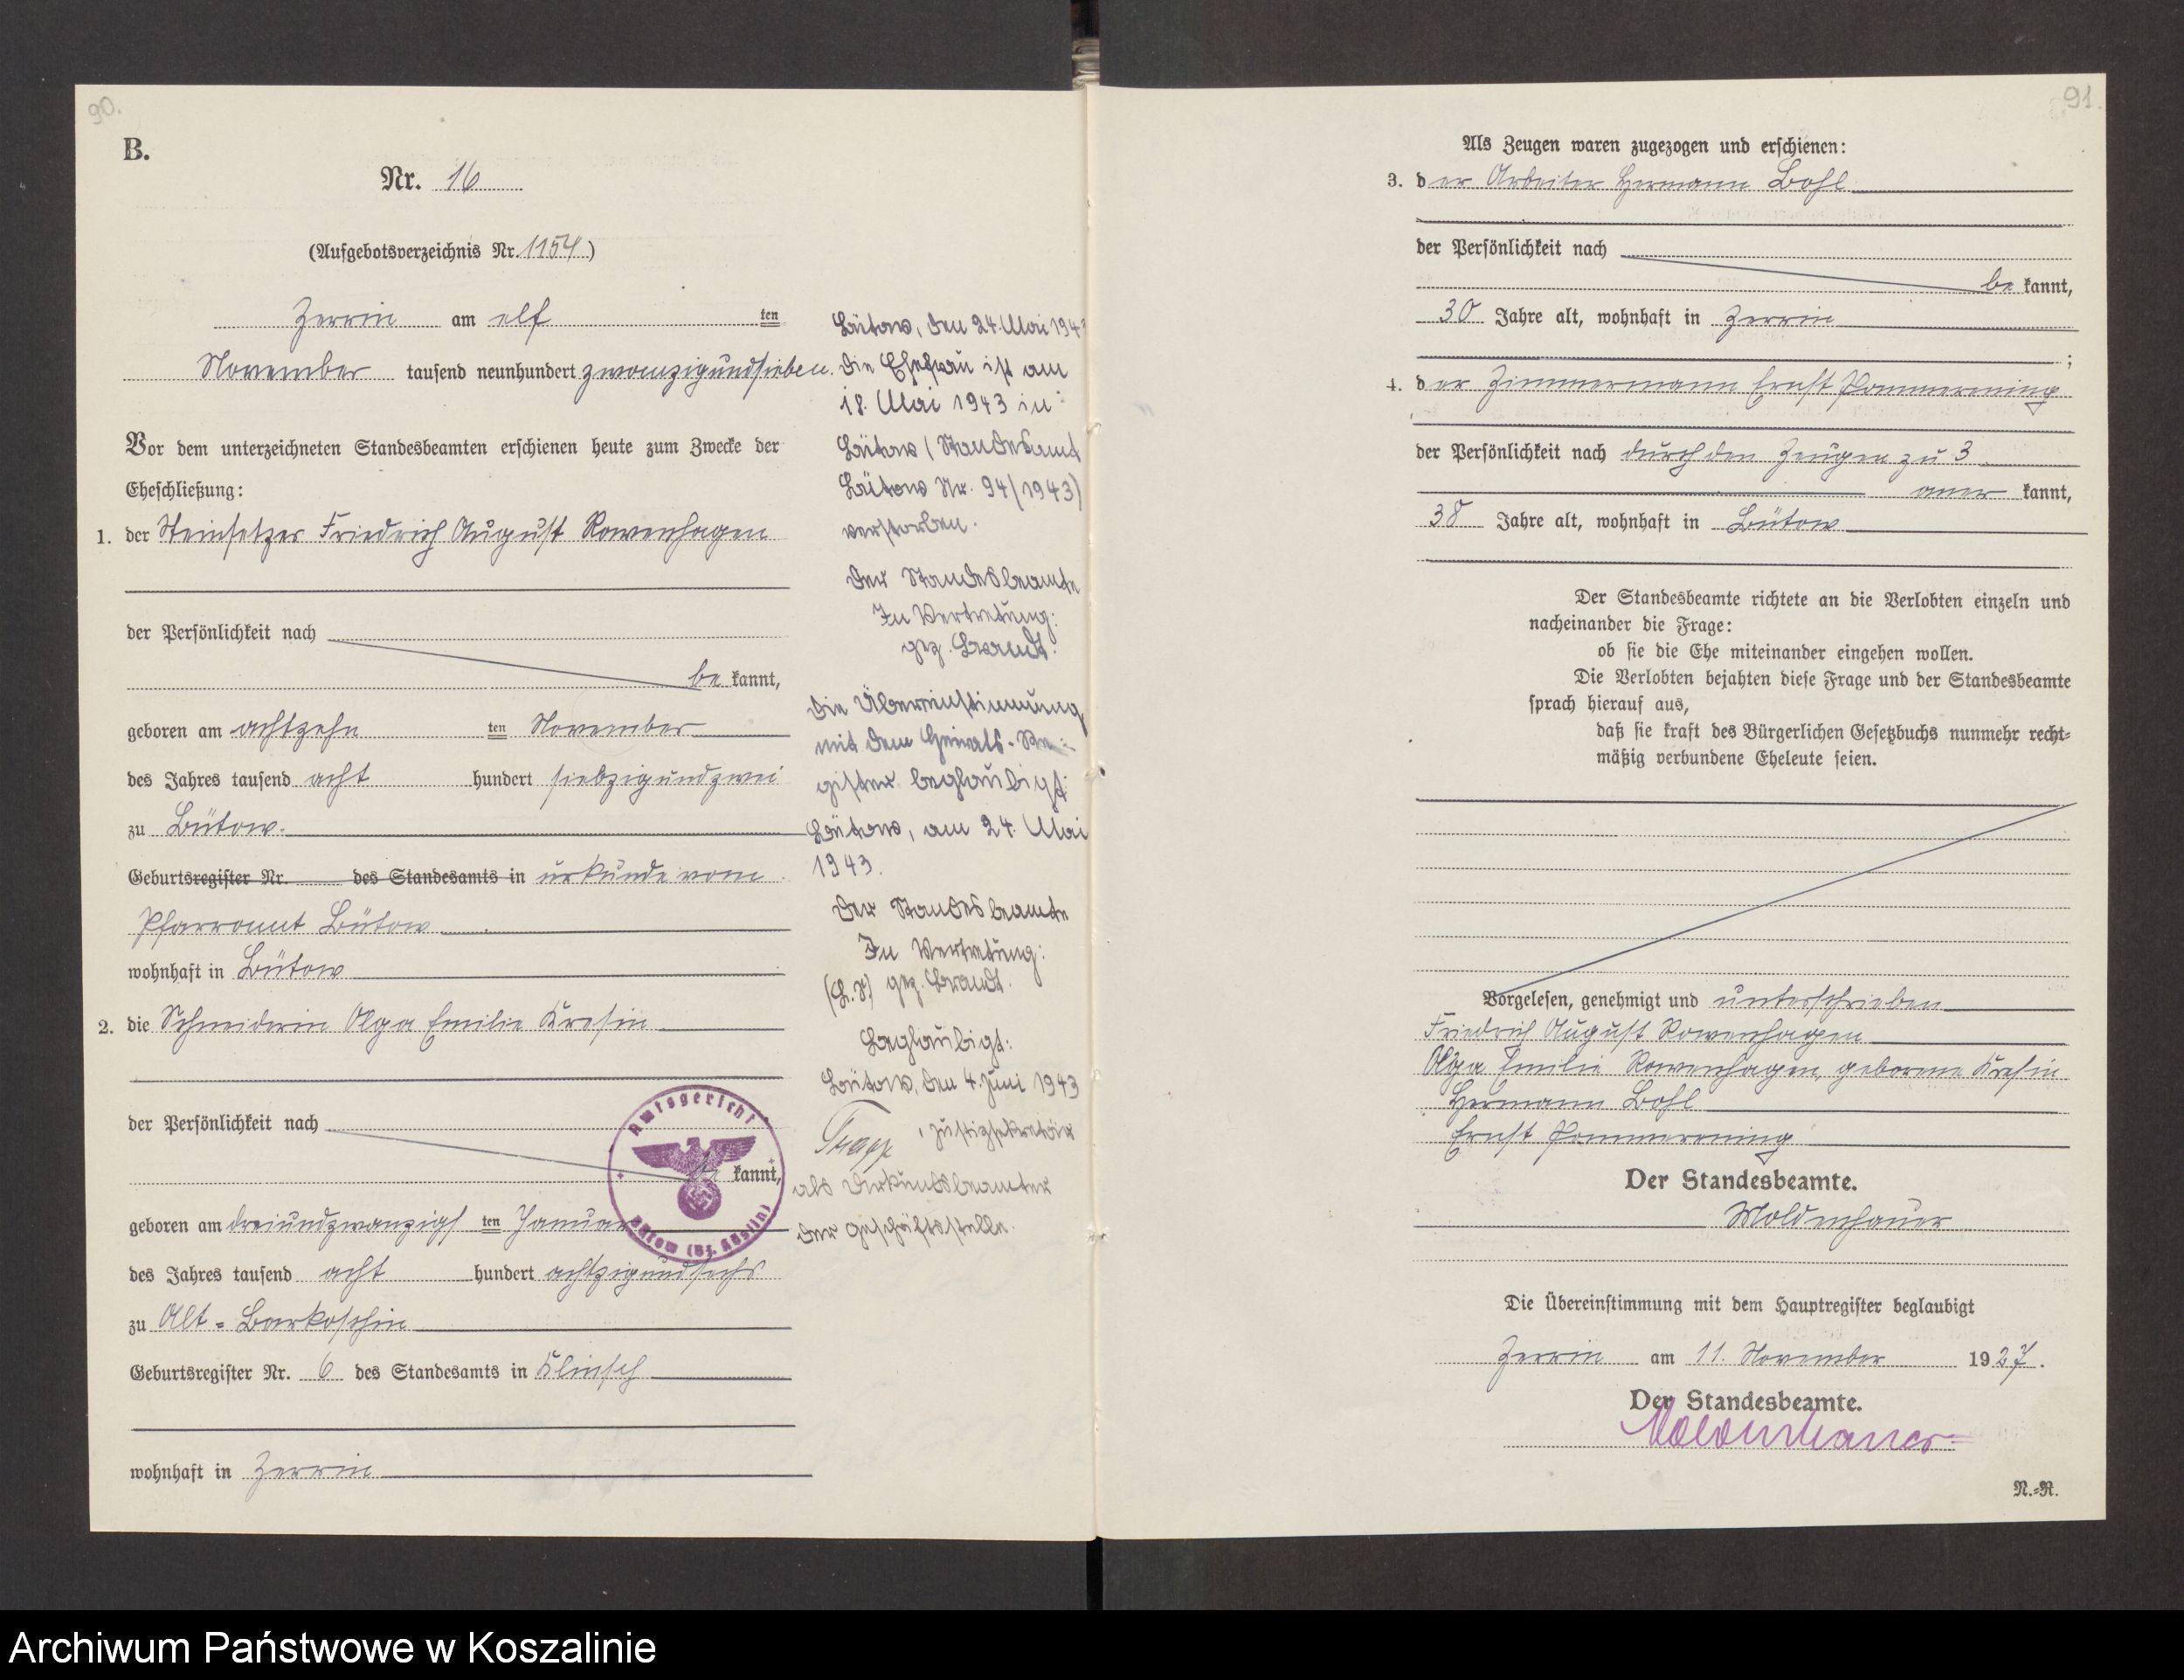 90.
B.
Nr. 16
(Aufgebotsverzeichnis Nr. 1154)
Zerrin am elf ten
November tausend neunhundert zwanzigundsieben.
Vor dem unterzeichneten Standesbeamten erschienen heute zum Zwecke der
Eheschließung:
1. der Steinsetzer Friedrich August Rowenhagen
der Persönlichkeit nach
be kannt,
geboren am achtzehn ten November
des Jahres tausend acht hundert siebzigundzwei
zu Bütow.
Geburtsregister Nr. des Standesamts in urkunde vom
Pfarramt Bütow
wohnhaft in Bütow
2. die Schneiderin Olga Emilie Kresin
der Persönlichkeit nach
be kannt,
geboren am dreiundzwanzigs ten Januar
des Jahres tausend acht hundert achtzigundsechs
zu Alt-Barkoschin
Geburtsregister Nr. 6 des Standesamts in Klinsch
wohnhaft in Zerrin
Bütow, den 24. Mai 1943
Die Ehefrau ist am
18. Mai 1943 in
Bütow (Standesamt
Bütow Nr. 94/1943)
verstorben.
Der Standesbeamte
In Vertretung:
gez. Brandt.
Die Übereinstimmung
mit dem Heirats-Re-
gister beglaubigt:
Bütow, am 24. Mai
1943.
Der Standesbeamte
In Vertretung:
(L.S.) gez. Brandt.
Beglaubigt:
Bütow, den 4. Juni 1943
, Justizsekretär
als Urkundsbeamter
der Geschäftsstelle.
Amtsgericht
Bütow (Bz. Köslin)
91.
Als Zeugen waren zugezogen und erschienen:
3. der Arbeiter Hermann Bohl
der Persönlichkeit nach
be kannt,
30 Jahre alt, wohnhaft in Zerrin
;
4. der Zimmermann Ernst Pommerening
der Persönlichkeit nach durch den Zeugen zu 3
aner kannt,
38 Jahre alt, wohnhaft in Bütow
Der Standesbeamte richtete an die Verlobten einzeln und
nacheinander die Frage:
ob sie die Ehe miteinander eingehen wollen.
Die Verlobten bejahten diese Frage und der Standesbeamte
sprach hierauf aus,
daß sie kraft des Bürgerlichen Gesetzbuchs nunmehr recht-
mäßig verbundene Eheleute seien.
Vorgelesen, genehmigt und unterschrieben
Friedrich August Rowenhagen
Olga Emilie Rowenhagen, geborene Kresin
Hermann Bohl
Ernst Pommerening
Der Standesbeamte.
Moldenhauer
Die Übereinstimmung mit dem Hauptregister beglaubigt
Zerrin am 11. November 1927.
Der Standesbeamte.
Moldenhauer
N.-R.
Archiwum Państwowe w Koszalinie